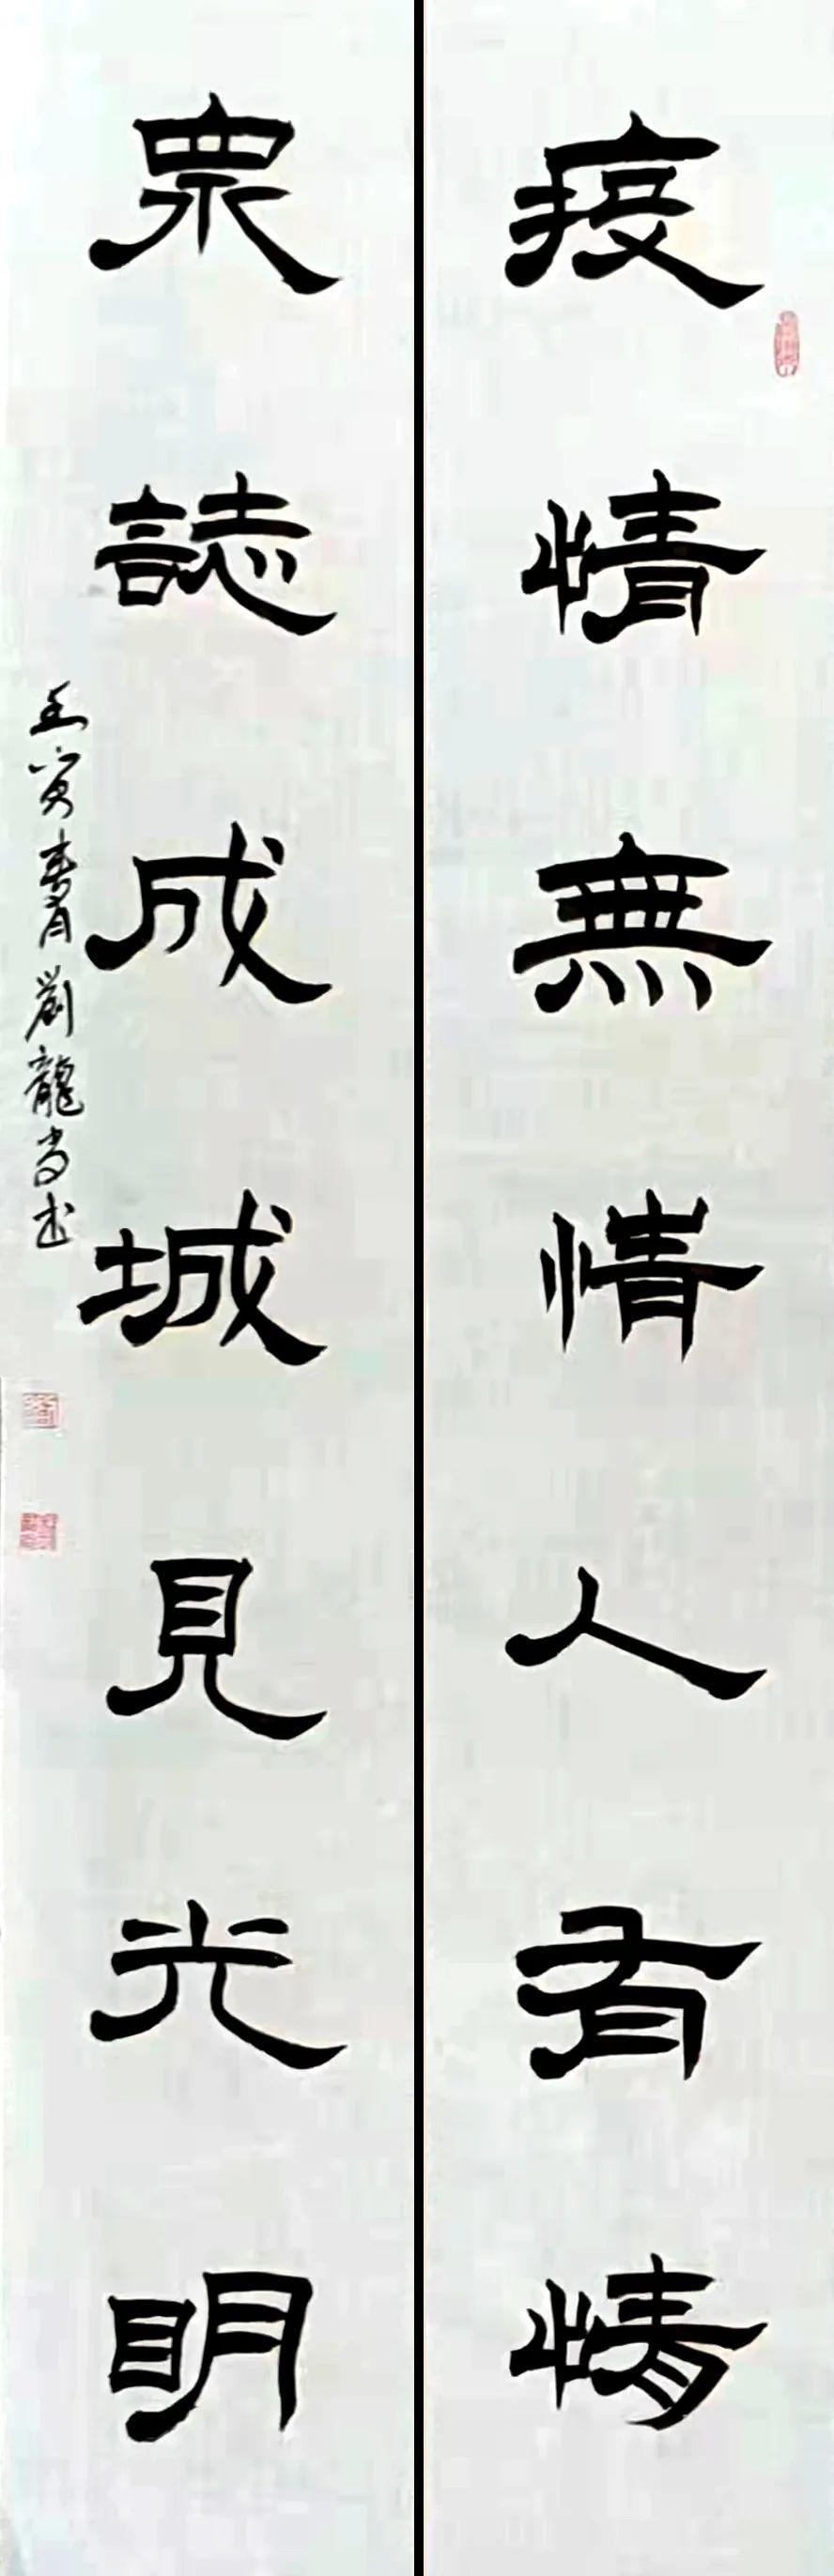 疫情無情人有情
眾誌成城見光明
壬寅春月劉龍尚書